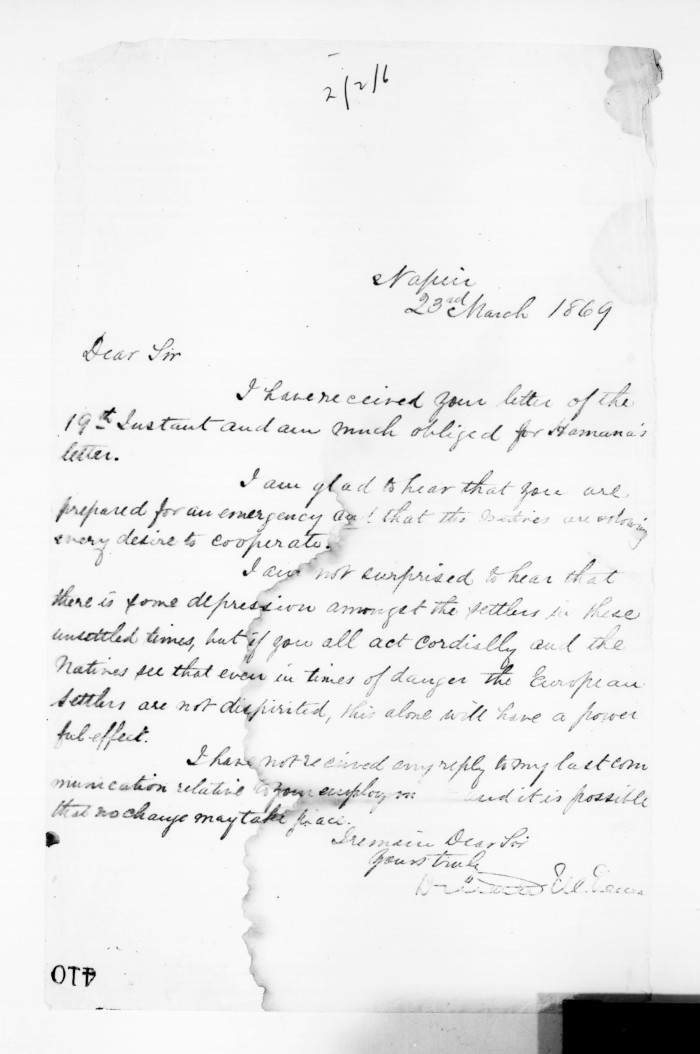 2/2/6
Napier
23rd March 1869
Dear Sir
I have received your letter of the
19th Instant and am much obliged for Hamana's
letter.
I am glad to hear that you are
prepared for an emergency and that the natives are showing
every desire to cooperate.
I am not surprised to hear that
there is some depression amongst the settlers in these
unsettled times, but if you all act cordially and the
Natives see that even in times of danger the European
settlers are not dispirited, this alone will have a power
ful effect.
I have not received any reply to my last com
munication relative to your employm and it is possible
that no change may take place.
I remain Dear Sir
Yours truly
410